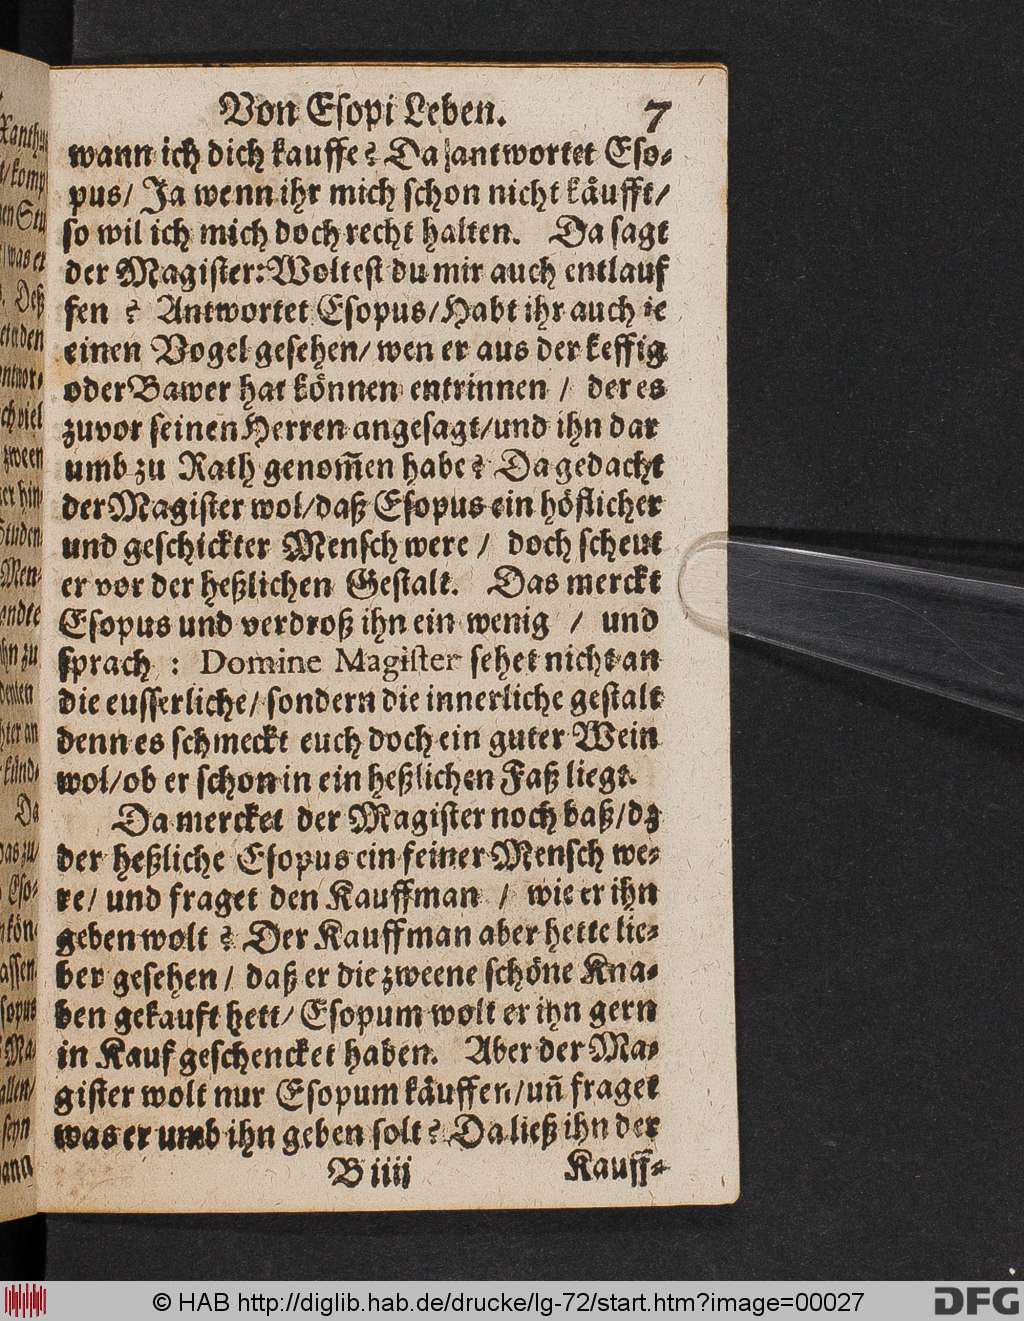 Von Esopi Leben. 7
wann ich dich kauffe? Da antwortet Eso-
pus/ Ja wenn ihr mich schon nicht käufft/
so wil ich mich doch recht halten. Da sagt
der Magister: Woltest du mir auch entlauf
fen? Antwortet Esopus/ Habt ihr auch ie
einen Vogel gesehen/ wen er aus der keffig
oder Bawer hat können entrinnen/ der es
zuvor seinen Herren angesagt/ und ihn dar
umb zu Rath genom̃en habe? Da gedacht
der Magister wol/ daß Esopus ein höflicher
und geschickter Mensch were/ doch scheut
er vor der heßlichen Gestalt. Das merckt
Esopus und verdroß ihn ein wenig/ und
sprach: Domine Magister sehet nicht an
die eusserliche/ sondern die innerliche gestalt
denn es schmeckt euch doch ein guter Wein
wol/ ob er schon in ein heßlichen Faß liegt.
Da mercket der Magister noch baß/ dz
der heßliche Esopus ein feiner Mensch we-
re/ und fraget den Kauffman/ wie er ihn
geben wolt? Der Kauffman aber hette lie-
ber gesehen/ daß er die zweene schöne Kna-
ben gekauft hett/ Esopum wolt er ihn gern
in Kauf geschencket haben. Aber der Ma-
gister wolt nur Esopum käuffen/ uñ fraget
was er umb ihn geben solt? Da ließ ihn der
B iiij Kauff-
© HAB http://diglib.hab.de/drucke/lg-72/start.htm?image=00027
DFG